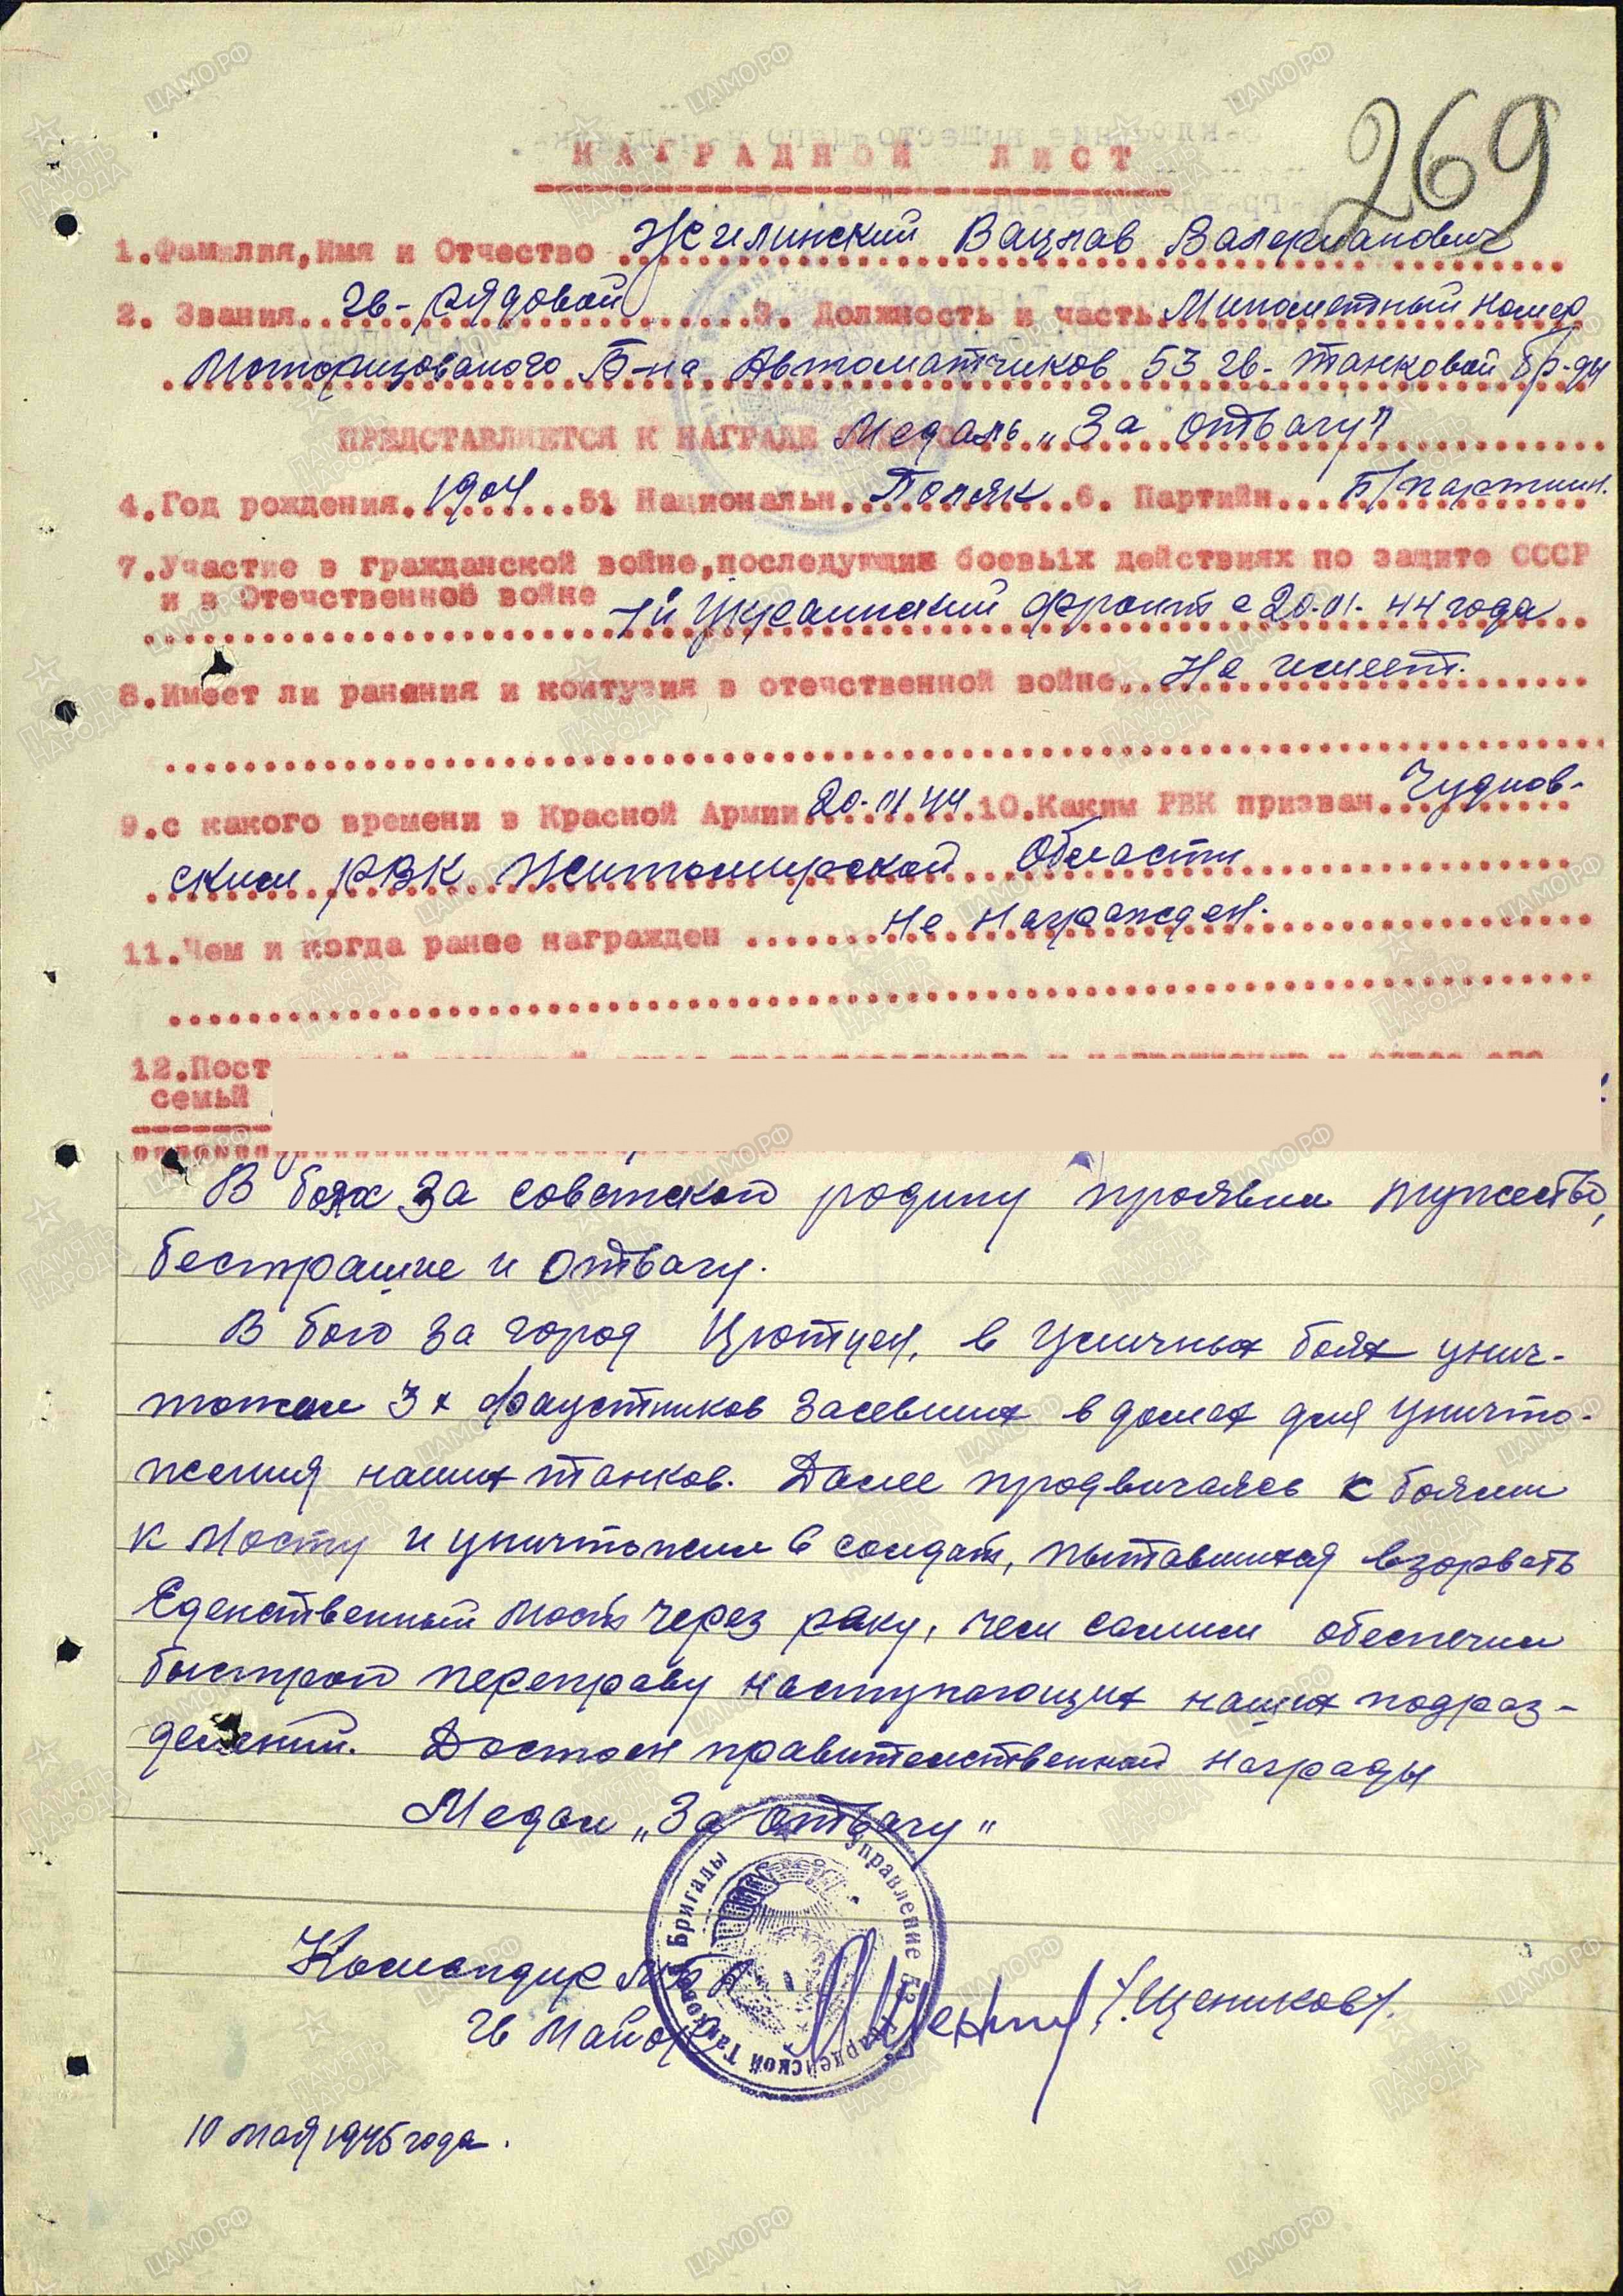 269
НАГРАДНОЙ ЛИСТ
1.Фамилия,Имя и Отчество Жилинский Вацлав Валерианович
2. Звания гв-рядовой 3. Должность и часть Минометный номер
Моторизованого Б-на Автоматчиков 53 гв. танковой бр-ды
ПРЕДСТАВЛЯЕТСЯ К НАГРАДЕ Медаль „За отвагу"
4.Год рождения 1904 5. Национальн Поляк 6. Партийн Б/партиин.
7.Участие в гражданской войне,последующих боевых действиях по защите СССР
и в Отечственной войне 1й Украинский фронт с 20.01.44 года
8.Имеет ли ранения и контузия в отечственной войне Не имеет.
9.с какого времени в Красной Армии 20.01.44 10.Каким РВК призван Чуднов-
ским РВК Житомирской Области
11.Чем и когда ранее награжден Не награжден.
12.Пост
семьй
В боях за советской родину проявил мужество,
бестрашие и отвагу.
В бою за город Цютцен, в уличных боях унич-
тожил 3х фаустников засевших в домах для уничто-
жения наших танков. Далее продвигаясь с боями
к мосту и уничтожил 6 солдат, пытавшихся взорвать
Еденственный мост через реку, чем самим обеспечил
быстрой переправу наступающих наших подраз-
делений. Достоен правительственной награды
Медали „За отвагу"
Командир МБА
Гв Майор /Щеников/.
Управление 53 Гвардейской Танковой Бригады
10 мая 1945 года.
ЦАМО РФ
ПАМЯТЬ НАРОДА